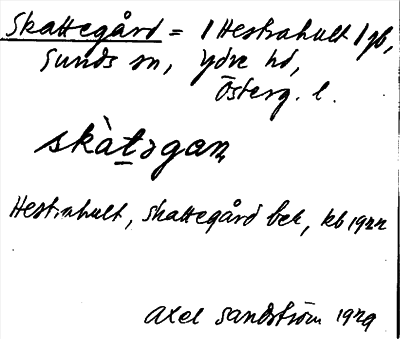 Skattegård = 1 Hestrahult 1 gb,
Sunds sn, Ydre hd,
Österg. l.
skàt̲əgaɳ
Hestrahult, skattegård bek, kb 1922
Axel Sandström 1929